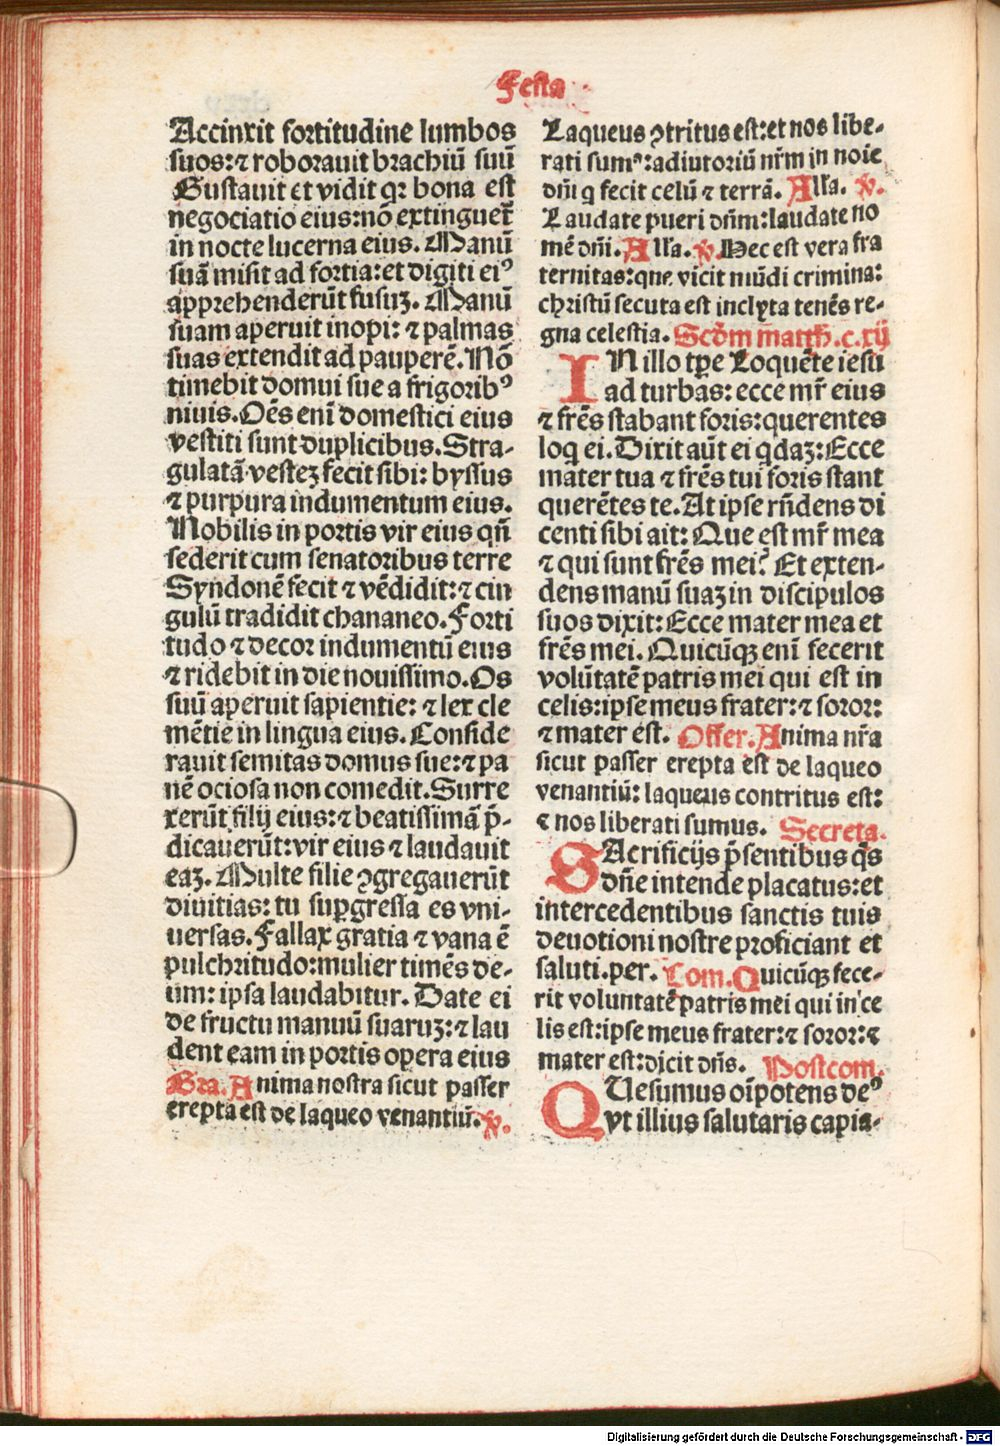 Festa
Accinxit fortitudine lumbos
suos: ⁊ roborauit brachiū suū
Gustauit et vidit qꝛ bona est
negociatio eius: nō extinguet̄
in nocte lucerna eius. Manū
suā misit ad fortia: et digiti eiꝰ
apprehenderūt fusuꝫ. Manū
suam aperuit inopi: ⁊ palmas
suas extendit ad pauperē. Nō
timebit domui sue a frigoribꝰ
niuis. Oēs enī domestici eius
vestiti sunt duplicibus. Stra-
gulatā vesteꝫ fecit sibi: byssus
⁊ purpura indumentum eius.
Nobilis in portis vir eius qn̄
sederit cum senatoribus terre
Syndonē fecit ⁊ vēdidit: ⁊ cin
gulū tradidit chananeo. Forti
tudo ⁊ decor indumentū eius
⁊ ridebit in die nouissimo. Os
suū aperuit sapientie: ⁊ lex cle
mētie in lingua eius. Conside
rauit semitas domus sue: ⁊ pa
nē ociosa non comedit. Surre
xerūt filij eius: ⁊ beatissimā p̄-
dicauerūt: vir eius ⁊ laudauit
eaꝫ. Multe filie ꝯgregauerūt
diuitias: tu suꝑgressa es vni-
uersas. Fallax gratia ⁊ vana ē
pulchritudo: mulier timēs de-
um: ipsa laudabitur. Date ei
de fructu manuū suaruꝫ: ⁊ lau
dent eam in portis opera eius
Gra. Anima nostra sicut passer
erepta est de laqueo venantiū. ℣.
Laqueus ꝯtritus est: et nos libe-
rati sumꝰ: adiutoriū nr̄m in noīe
dn̄i q fecit celū ⁊ terrā. Alľa. ℣.
Laudate pueri dn̄m: laudate no
mē dn̄i. Alľa. ℣. Hec est vera fra
ternitas: que vicit mūdi crimina:
christū secuta est inclyta tenēs re-
gna celestia. Scďm matth. c. xij
IN illo tꝑe Loquēte iesu
ad turbas: ecce mr̄ eius
⁊ frēs stabant foris: querentes
loq̄ ei. Dixit aūt ei q̄daꝫ: Ecce
mater tua ⁊ frēs tui foris stant
querētes te. At ipse rn̄dens di
centi sibi ait: Que est mr̄ mea
⁊ qui sunt frēs mei? Et exten-
dens manū suaꝫ in discipulos
suos dixit: Ecce mater mea et
frēs mei. Quicūqꝫ enī fecerit
volūtatē patris mei qui est in
celis: ipse meus frater: ⁊ soror:
⁊ mater est. Offer. Anima nr̄a
sicut passer erepta est de laqueo
venantiū: laqueus contritus est:
⁊ nos liberati sumus. Secreta.
SAcrificijs p̄sentibus q̄s
dn̄e intende placatus: et
intercedentibus sanctis tuis
deuotioni nostre proficiant et
saluti. per. Com. Quicūqꝫ fece-
rit voluntatē patris mei qui in ce
lis est: ipse meus frater: ⁊ soror: ⁊
mater est: dicit dn̄s. Postcom.
QUesumus oīpotens deꝰ
vt illius salutaris capia-
Digitalisierung gefördert durch die Deutsche Forschungsgemeinschaft - DFG